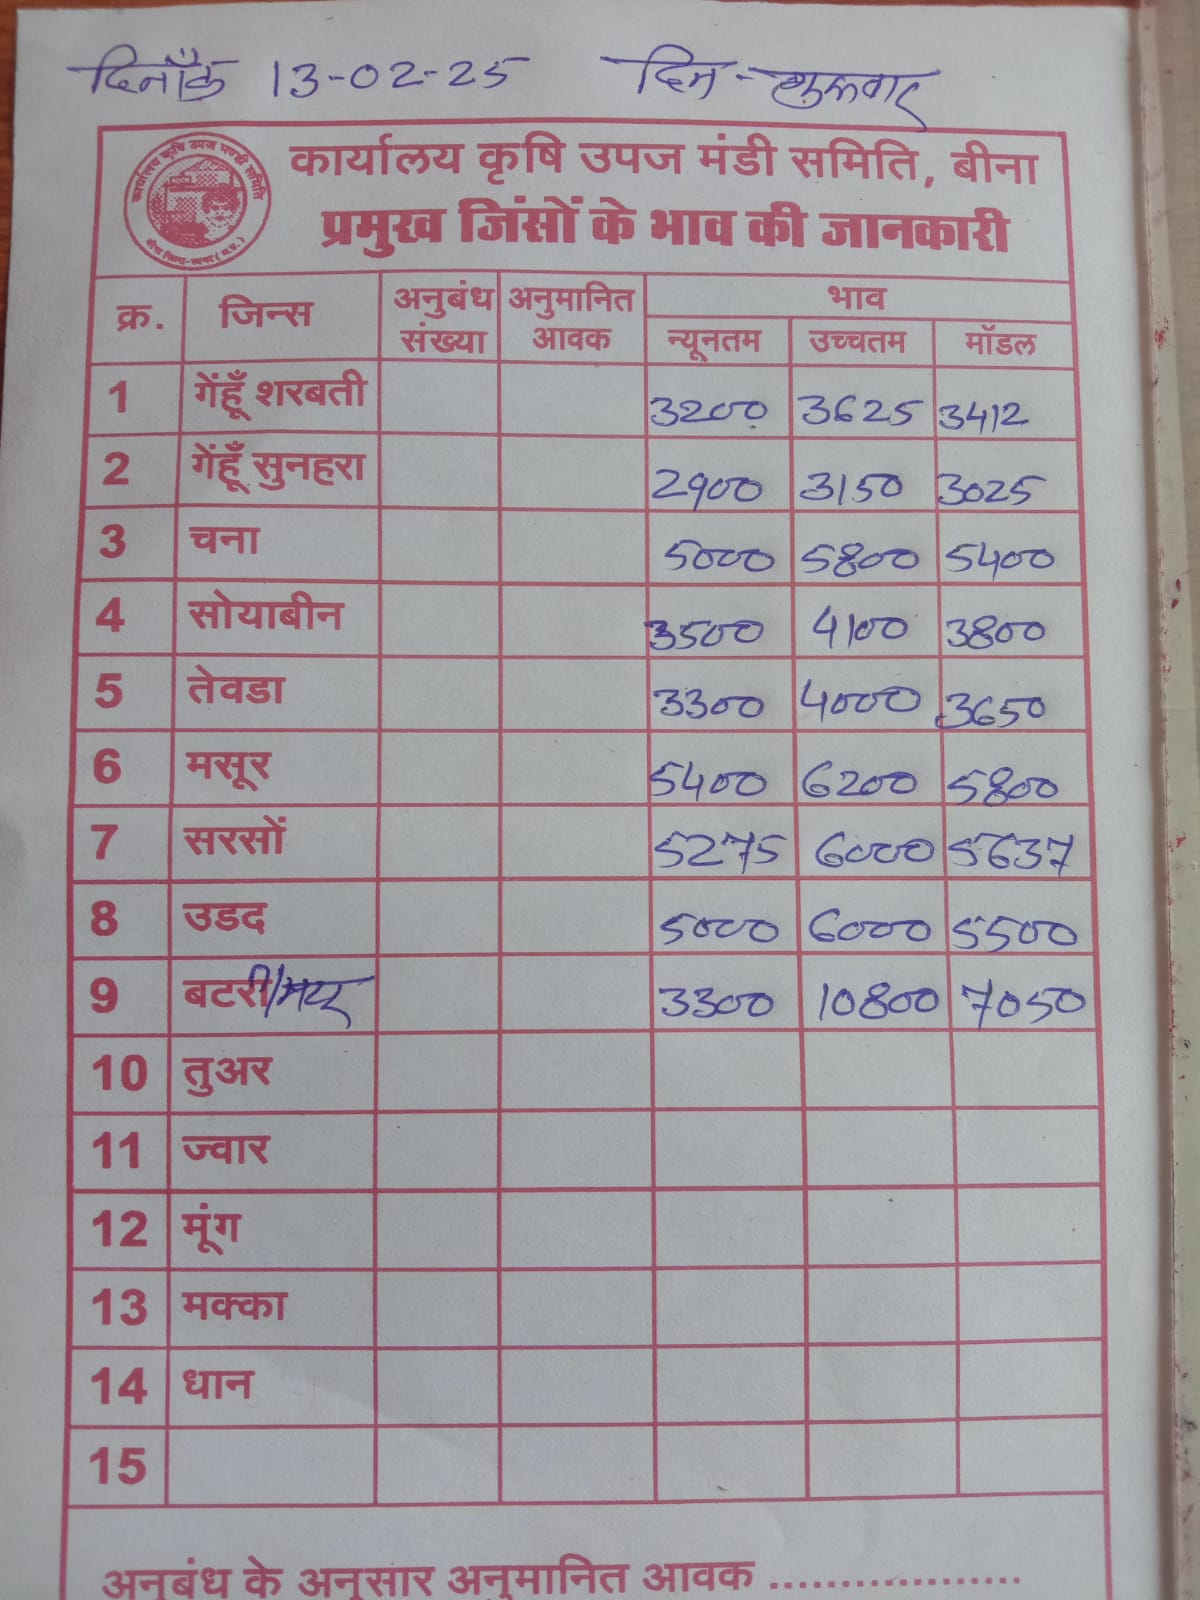 दिनाँक 13-02-25 दिन - शुक्रवार
कार्यालय कृषि उपज मण्डी समिति
बीना जिला-सागर (म.प्र.)
कार्यालय कृषि उपज मंडी समिति, बीना
प्रमुख जिंसों के भाव की जानकारी
क्र. जिन्स अनुबंध संख्या अनुमानित आवक भाव
न्यूनतम उच्चतम मॉडल
1 गेंहूँ शरबती 3200 3625 3412
2 गेंहूँ सुनहरा 2900 3150 3025
3 चना 5000 5800 5400
4 सोयाबीन 3500 4100 3800
5 तेवडा 3300 4000 3650
6 मसूर 5400 6200 5800
7 सरसों 5275 6000 5637
8 उडद 5000 6000 5500
9 बटरी/मटर 3300 10800 7050
10 तुअर
11 ज्वार
12 मूंग
13 मक्का
14 धान
15
अनुबंध के अनुसार अनुमानित आवक ...................